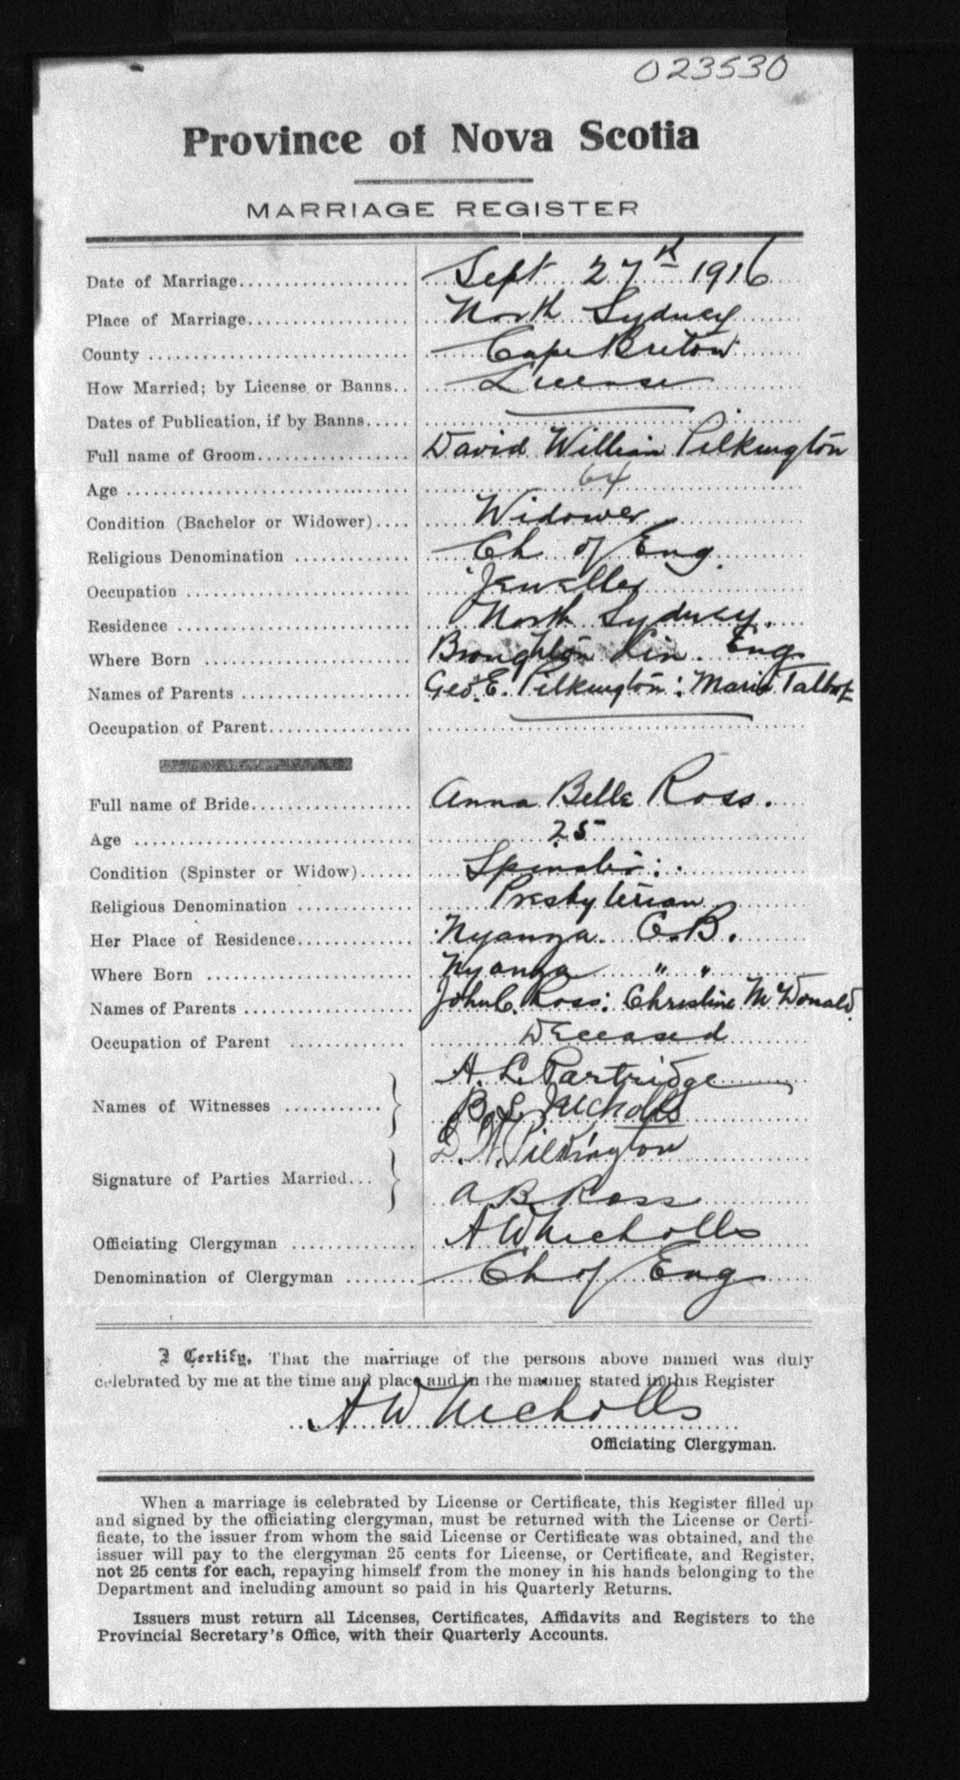 023530
Province of Nova Scotia
MARRIAGE REGISTER
Date of Marriage.................... Sept 27th 1916
Place of Marriage................... North Sydney
County .............................. Cape Breton
How Married; by License or Banns.. License
Dates of Publication, if by Banns.....
Full name of Groom.................. David William Pilkington
Age ................................. 64
Condition (Bachelor or Widower).... Widower
Religious Denomination .............. Ch of Eng.
Occupation .......................... Jeweller
Residence ........................... North Sydney.
Where Born ........................ Broughton Eng
Names of Parents .................... Geo. E. Pilkington: Maria Talbot
Occupation of Parent.................
Full name of Bride................... Anna Belle Ross.
Age ................................. 25
Condition (Spinster or Widow)...... Spinster:
Religious Denomination .............. Presbyterian
Her Place of Residence............. Nyanza. C.B.
Where Born ........................ Nyanza " "
Names of Parents .................... John C. Ross: Christine McDonald
Occupation of Parent .............. Deceased
A. L. Partridge
Names of Witnesses ............ B. L. Nicholls
D. W. Pilkington
Signature of Parties Married...
A B Ross
Officiating Clergyman ............... A W Nicholls
Denomination of Clergyman ........ Ch of Eng
I Certify, That the marriage of the persons above named was duly
celebrated by me at the time and place and in the manner stated in this Register
A W Nicholls
Officiating Clergyman.
When a marriage is celebrated by License or Certificate, this Register filled up
and signed by the officiating clergyman, must be returned with the License or Certi-
ficate, to the issuer from whom the said License or Certificate was obtained, and the
issuer will pay to the clergyman 25 cents for License, or Certificate, and Register,
not 25 cents for each, repaying himself from the money in his hands belonging to the
Department and including amount so paid in his Quarterly Returns.
Issuers must return all Licenses, Certificates, Affidavits and Registers to the
Provincial Secretary's Office, with their Quarterly Accounts.